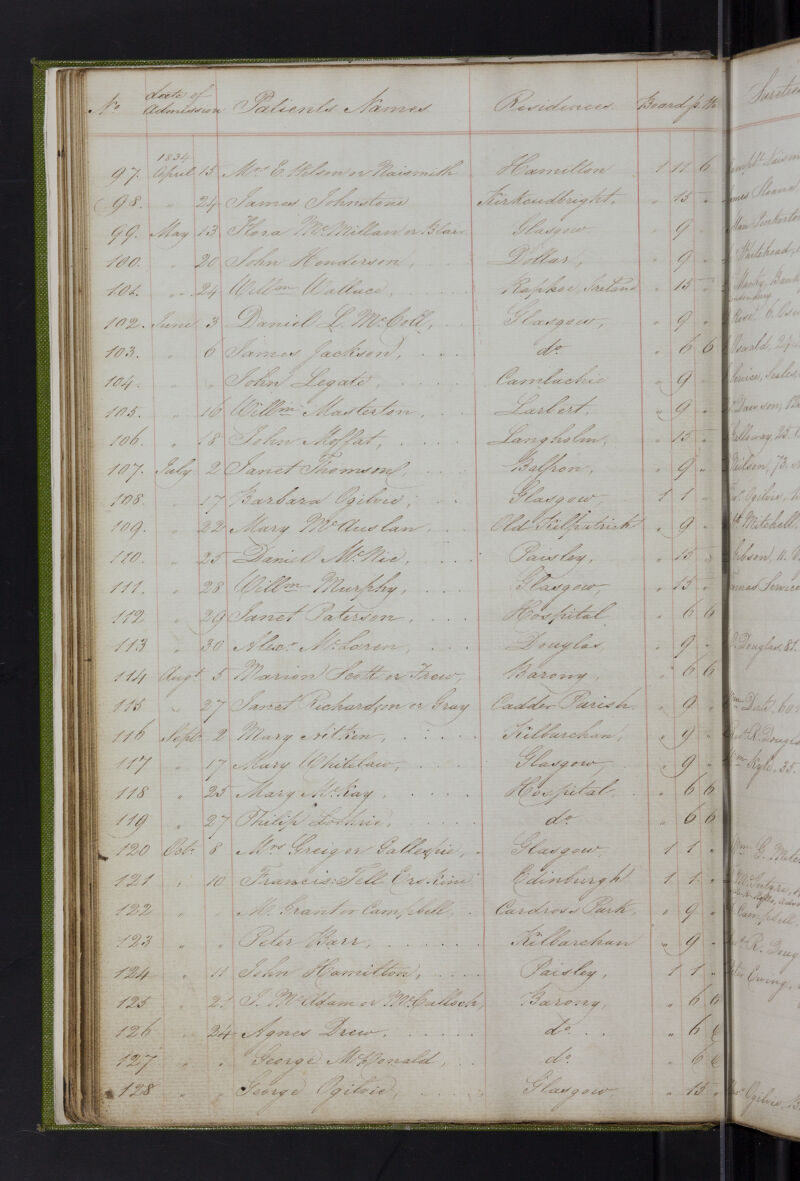 No. date of Admission Patients Names Residences Board p. Wk Sureties
1834
97. April 15 Mrs E. Wilson or Naismith Hamilton 1 11 6
98. " 24 James Johnstone Kirkcudbright, " 15 "
99. May 13 Flora McMillan or Blair Glasgow " 9 "
100. " 20 John Henderson, Dollar, " 9 " Whitehead,
101. " 24 Willm Wallace, Raphoe, Ireland " 15 "
102. June 3 Daniel L. McColl, Glasgow, " 9 "
103. " 6 James Jackson, do " 6 6 Oswald,
104. " " John Legate, Camlachie " 9 "
105. " 16 Willm Masterton, Larbert, " 9 " Dawson,
106. " 18 John Moffat, Langholm, " 15 " Galloway, 25
107. July 2 Janet Thomson, Balfron, " 9 " Neilson, 73
108. " 17 Barbara Ogilvie, Glasgow, 1 1 " Ogilvie,
109. " 22 Mary McAuslan Old Kilpatrick " 9 " Mitchell
110. " 25 Daniel McNie, Paisley, " 15 " Gibson,
111. " 28 Willm Murphy, Glasgow, " 15 " Service
112 " 29 Janet Paterson, Hospital " 6 6
113 " 30 Alexr McLaren, Douglas " 9 " Douglas, 81
114 Augt 5 Marion Scott or Frew, Barony, " 6 6
115 " 27 Janet Richardson or Gray Cadder Parish " 9 " 60
116 Sept. 2 Mary Aitken, Kilbarchan, " 9 " R. Douglas
117 " 17 Mary Whitelaw, Glasgow " 9 " Kyle, 35
118 " 25 Mary McKay Hospital " 6 6
119 " 27 Philip do " 6 6
120 Octr 8 Mrs Greig or Gillespie, Glasgow, 1 1 "
121 " 10 Francis Tell Erskine Edinburgh 1 1 "
122 " " Mr. Grant or Campbell, Cardross Park, " 9 " Campbell,
123 " " Peter Barr, Kilbarchan " 9 " R. Doug
124 " 11 John Hamilton, Paisley, 1 1 " Ewing,
125 " 21 J. McAdam or McCulloch, Barony, " 6 6
126 " 24 Agnes Drew, do " 6 6
127 " " George McDonald, do " 6 6
128 " " George Ogilvie, Glasgow " 15 " Ogilvie,